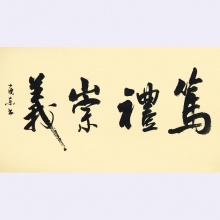 篤禮崇義